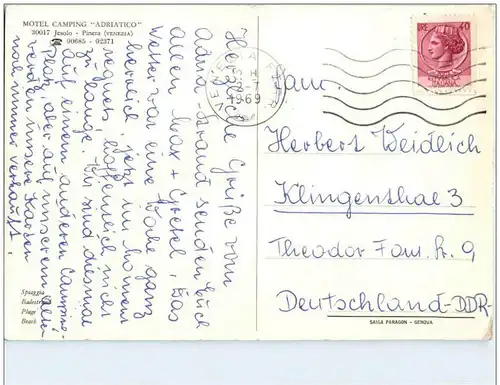 MOTEL CAMPING "ADRIATICO"
30017 Jesolo - Pineta (VENEZIA)
00685 - 02371
Herzliche Grüße vom
Adria-Strand senden Euch
allen Max + Gretel. Das
Wetter war eine Woche ganz
herrlich, jetzt im Moment
regnet's, hoffentlich nicht
zu lange. Wir sind diesmal
auf einem anderen Camping-
Platz, aber auf unserem alten
werden unsere Karten
noch immer verkauft.
Spiaggia
Plage
Beach
VENEZIA
1969
40
Fam.
Herbert Weidlich
Klingenthal 3
Theodor Fon. Str. 9
Deutschland-DDR-
SAIGA PARAGON - GENOVA